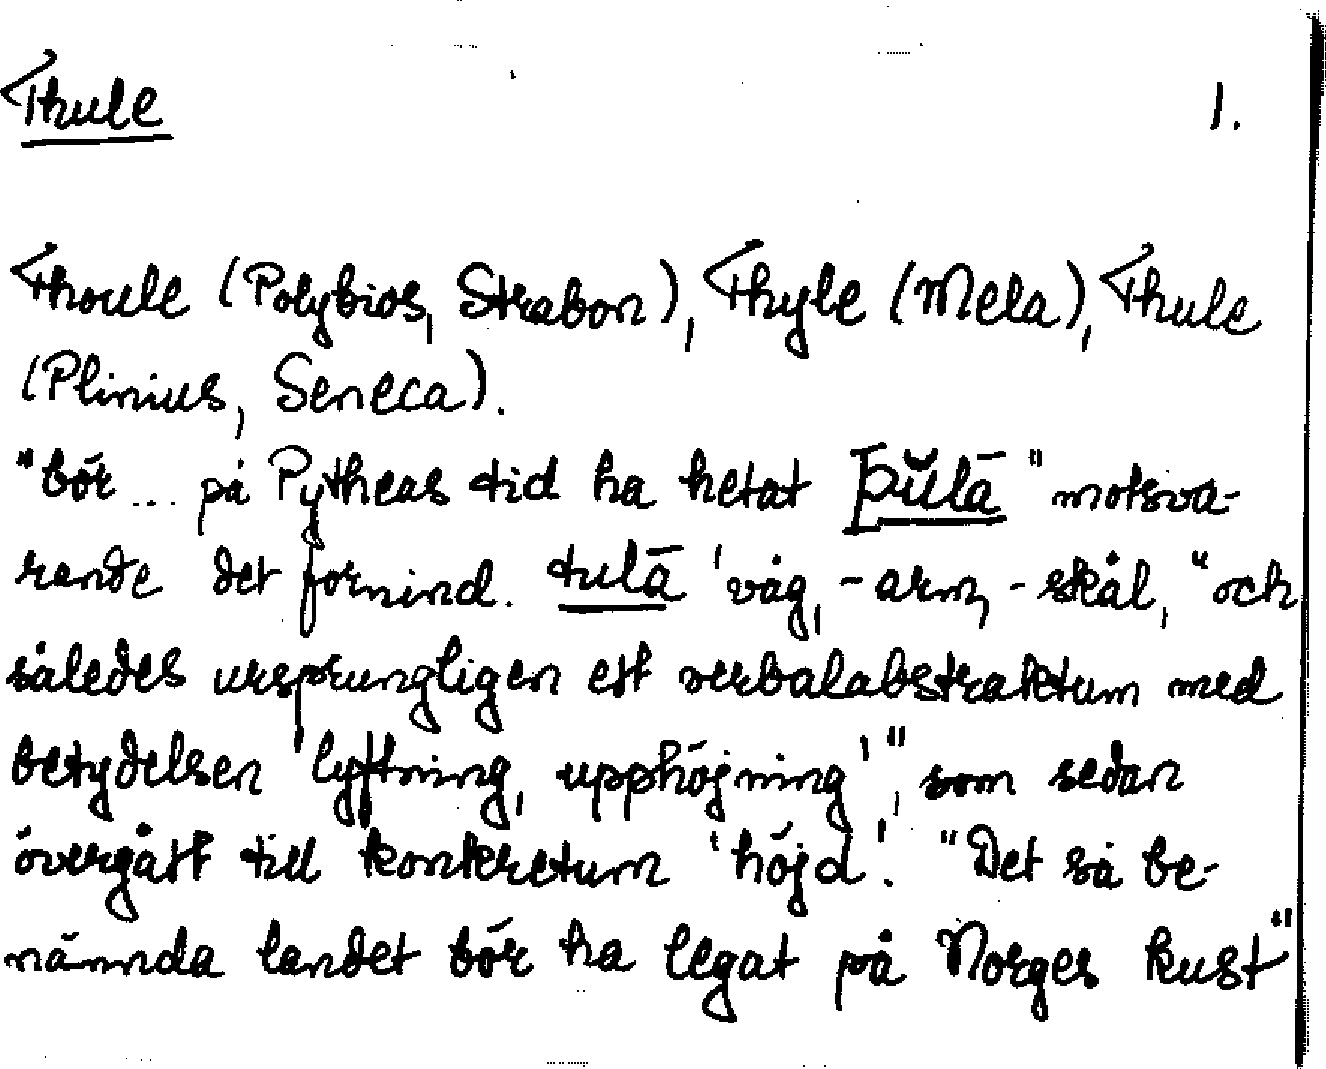 Thule 1.
Thoule (Polybios, Strabon), Thyle (Mela), Thule
(Plinius, Seneca).
"bör ... på Pytheas tid ha hetat Þŭlā" motsva-
rande det fornind. tulā 'våg, -arm, -skål, "och
således ursprungligen ett verbalabstraktum med
betydelsen 'lyftning, upphöjning'", som sedan
övergått till konkretum 'höjd'. "Det så be-
nämnda landet bör ha legat på Norges kust"